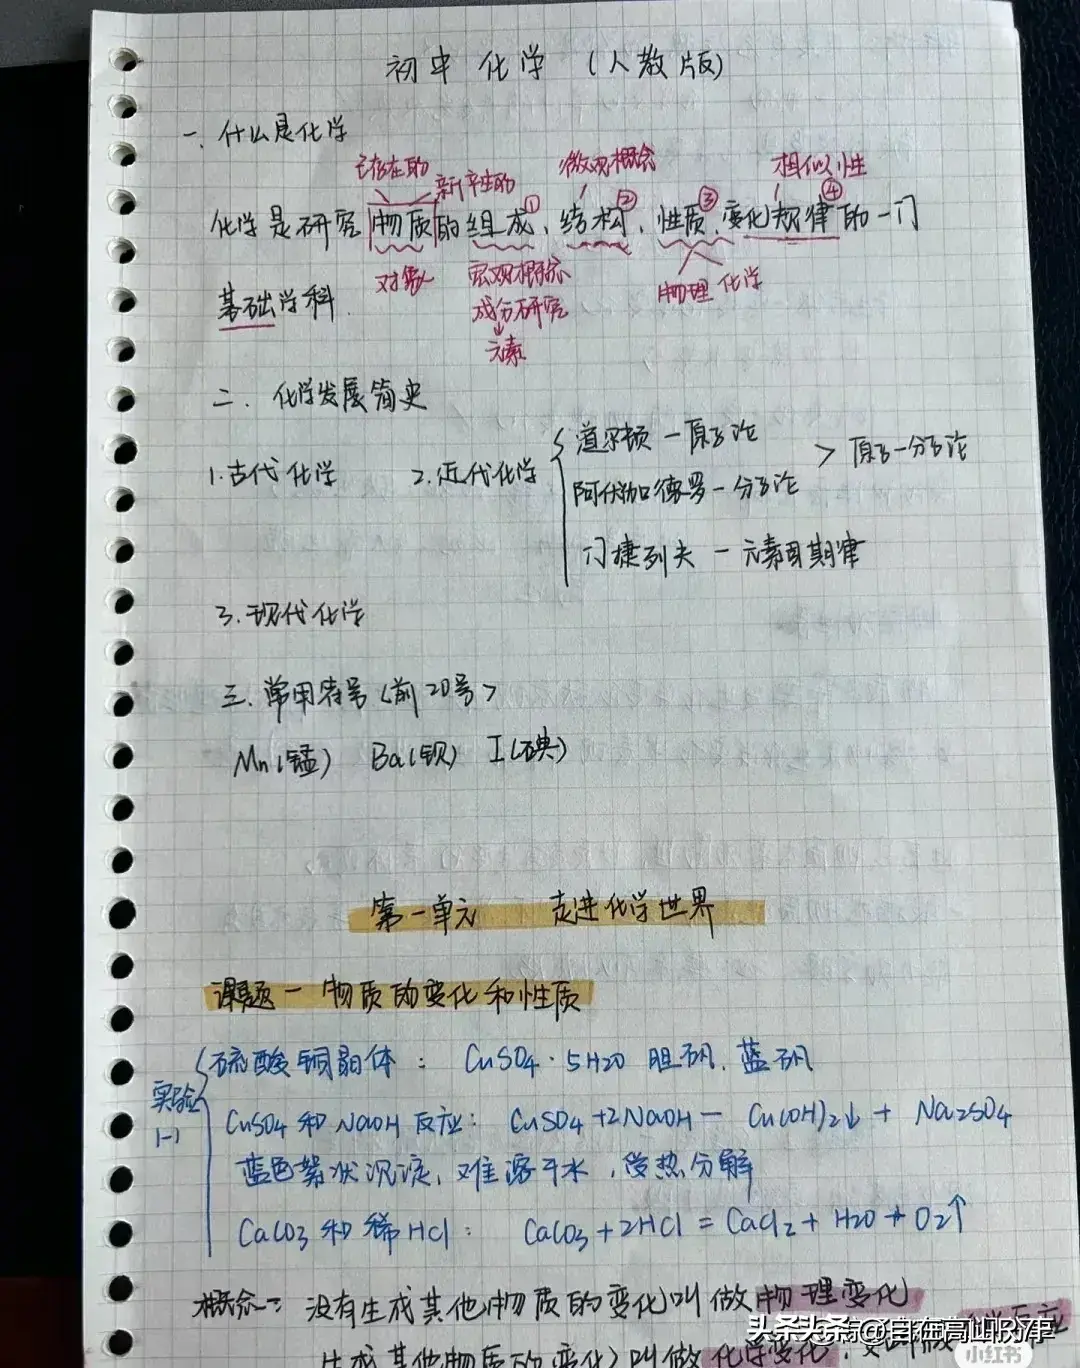 初中化学（人教版）
一、什么是化学
已存在的 新产生的 微观概念 相似性
化学是研究物质的组成①、结构②、性质③、变化规律④的一门
对象 宏观概念 物理 化学
基础学科. 成分研究
元素
二、化学发展简史
道尔顿—原子论
1.古代化学 2.近代化学 > 原子—分子论
阿伏伽德罗—分子论
门捷列夫—元素周期律
3.现代化学
三、常用符号<前20号>
Mn(锰) Ba(钡) I(碘)
第一单元 走进化学世界
课题一 物质的变化和性质
硫酸铜晶体：CuSO4·5H2O 胆矾、蓝矾
实验1-1
CuSO4和NaOH反应：CuSO4+2NaOH—Cu(OH)2↓+Na2SO4
蓝色絮状沉淀，难溶于水，受热分解
CaCO3和稀HCl：CaCO3+2HCl=CaCl2+H2O+O2↑
概念一：没有生成其他物质的变化叫做物理变化
生成其他物质的变化叫做化学变化，又叫做化学反应
头条 @自在高山
小红书